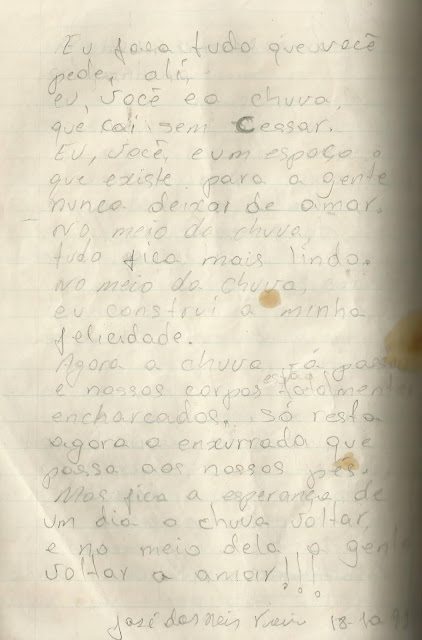 Eu faço tudo que você
pede, ali,
eu, você e o chuva,
que cai sem cessar.
Eu, você, e um espaço
que existe para a gente
nunca deixar de amar.
No meio da chuva,
tudo fica mais lindo.
No meio da chuva,
eu construí a minha
felicidade.
Agora a chuva já passou
e nossos corpos estão totalmente
encharcados, só resta
agora o enxurrada que
passa aos nossos pés.
Mas fica a esperança de
um dia o chuva voltar,
e no meio dela a gente
voltar a amar!!!
José dos Reis 18-10